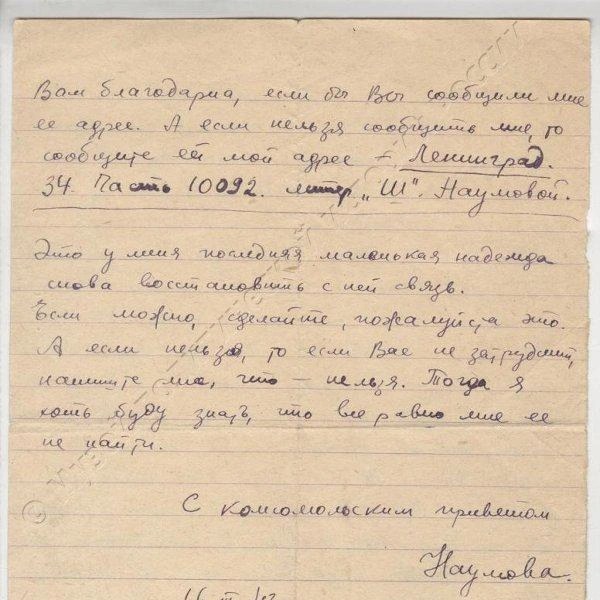 Вам благодарна, если бы Вы сообщили мне
ее адрес. А если нельзя сообщить мне, то
сообщите ей мой адрес – Ленинград.
34. Часть 10092. литер „Ш". Наумовой.
Это у меня последняя маленькая надежда
снова восстановить с ней связь.
Если можно, сделайте, пожалуйста это.
А если нельзя, то если Вас не затруднит,
напишите мне, что – нельзя. Тогда я
хоть буду знать, что все равно мне ее
не найти.
С комсомольским приветом
Наумова.